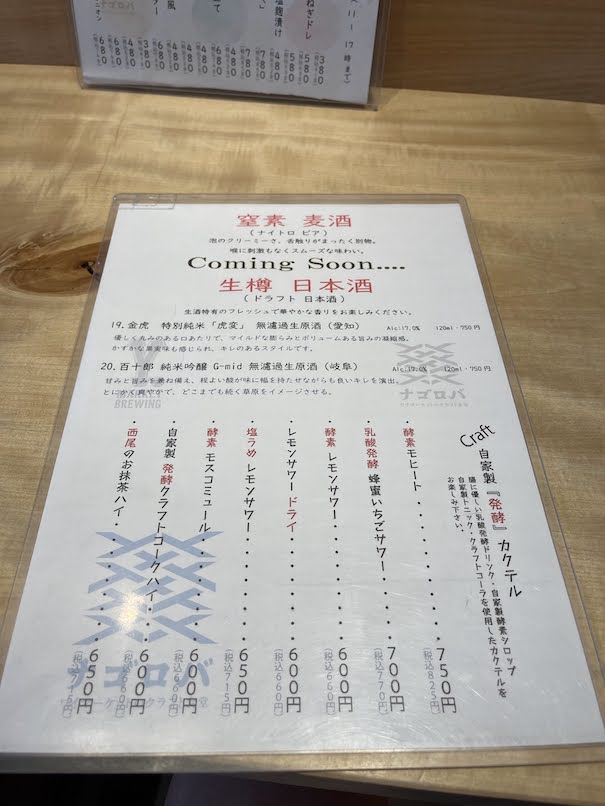 窒素 麦酒
(ナイトロ ビア)
泡のクリーミーさ、舌触りがまったく別物。
喉に刺激もなくスムーズな味わい。
Coming Soon....
生樽 日本酒
(ドラフト 日本酒)
生酒特有のフレッシュで華やかな香りをお楽しみください。
19. 金虎 特別純米「虎変」 無濾過生原酒(愛知) Alc.17.0% 120ml・750円
優しく丸みのある口あたりで、マイルドな膨らみとボリュームある旨みの凝縮感。
かすかな果実味も感じられ、キレのあるスタイルです。
20. 百十郎 純米吟醸 G-mid 無濾過生原酒(岐阜) Alc.17.0% 120ml・750円
甘みと旨みを兼ね備え、程よい酸が味に幅を持たせながらも良いキレを演出。
とにかく爽やかで、どこまでも続く草原をイメージさせる。
BREWING
ナゴロバ
Craft 自家製『発酵』カクテル
腸に優しい乳酸発酵ドリンク・自家製酵素シロップ
自家製トニック・クラフトコーラを使用したカクテルを
お楽しみ下さい。
・酵素モヒート・・・・・・・・・750円
(税込825円)
・乳酸発酵 蜂蜜いちごサワー・・・・700円
(税込770円)
・酵素 レモンサワー・・・・・・・600円
(税込660円)
・レモンサワー ドライ・・・・・・600円
(税込660円)
・塩うめ レモンサワー・・・・・・650円
(税込715円)
・酵素 モスコミュール・・・・・・600円
(税込660円)
・自家製 発酵クラフトコークハイ・・・600円
(税込660円)
・西尾のお抹茶ハイ・・・・・・・650円
ナゴロバ